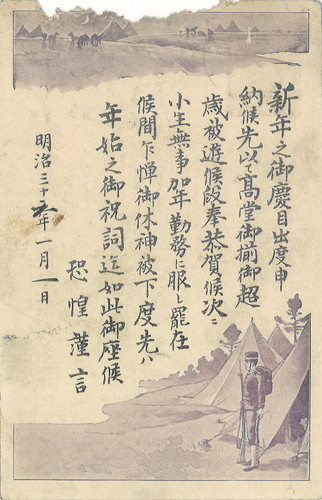 新年之御慶目出度申
納候先以て髙堂御揃御超
歳被遊候段奉恭賀候次ニ
小生無事加年勤務に服し罷在
候間乍憚御休神被下度先ハ
年始之御祝詞迄如此御座候
恐惶謹言
明治三十年一月一日